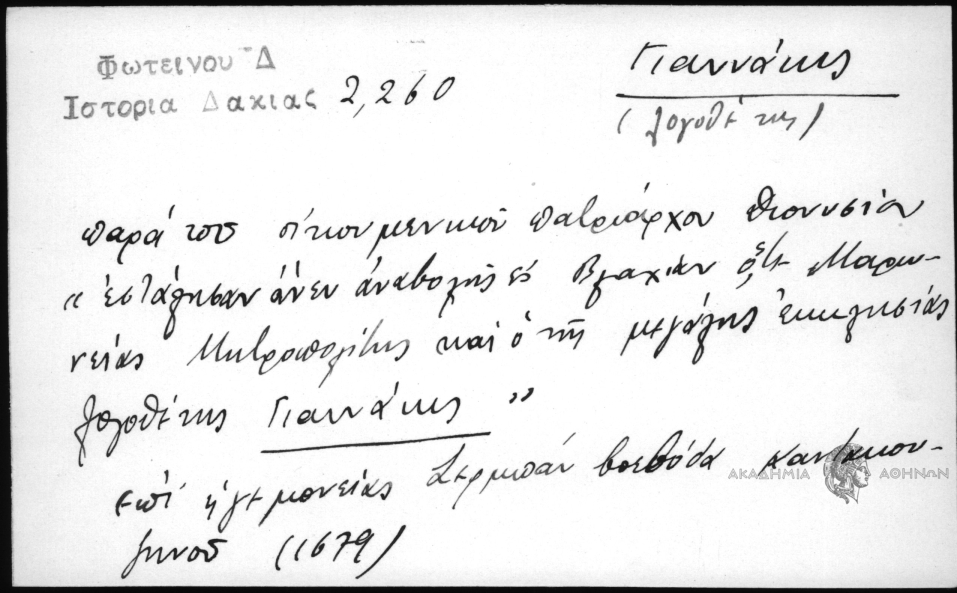 Φωτεινου Δ
Ιστορια Δακιας 2,260
Γιαννάκης
(λογοθέτης)
παρά τοῦ οἰκουμενικοῦ πατριάρχου Διονυσίου
"ἐστάλησαν ἄνευ ἀναβολῆς εἰς Βλαχίαν ὅ, τε Μαρω-
νείας Μητροπολίτης καί ὁ τῆς μεγάλης ἐκκλησίας
λογοθέτης Γιαννάκης"
ἐπί ἡγεμονείας Σερμπάν βοεβόδα Καντακου-
ζηνοῦ (1679)
ΑΚΑΔΗΜΙΑ ΑΘΗΝΩΝ